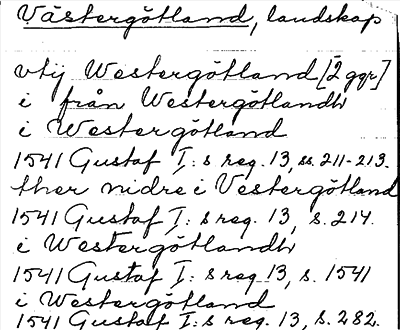 Västergötland, landskap
vtij Westergötland [2 ggr]
i från Westergötlandh
i Westergötland
1541 Gustaf I:s reg. 13, ss. 211-213.
ther nidre i Vestergötland
1541 Gustaf I:s reg. 13, s. 214.
i Westergötlandh
1541 Gustaf I:s reg. 13, s. 1541
i Westergötland
1541 Gustaf I:s reg. 13, s. 282.